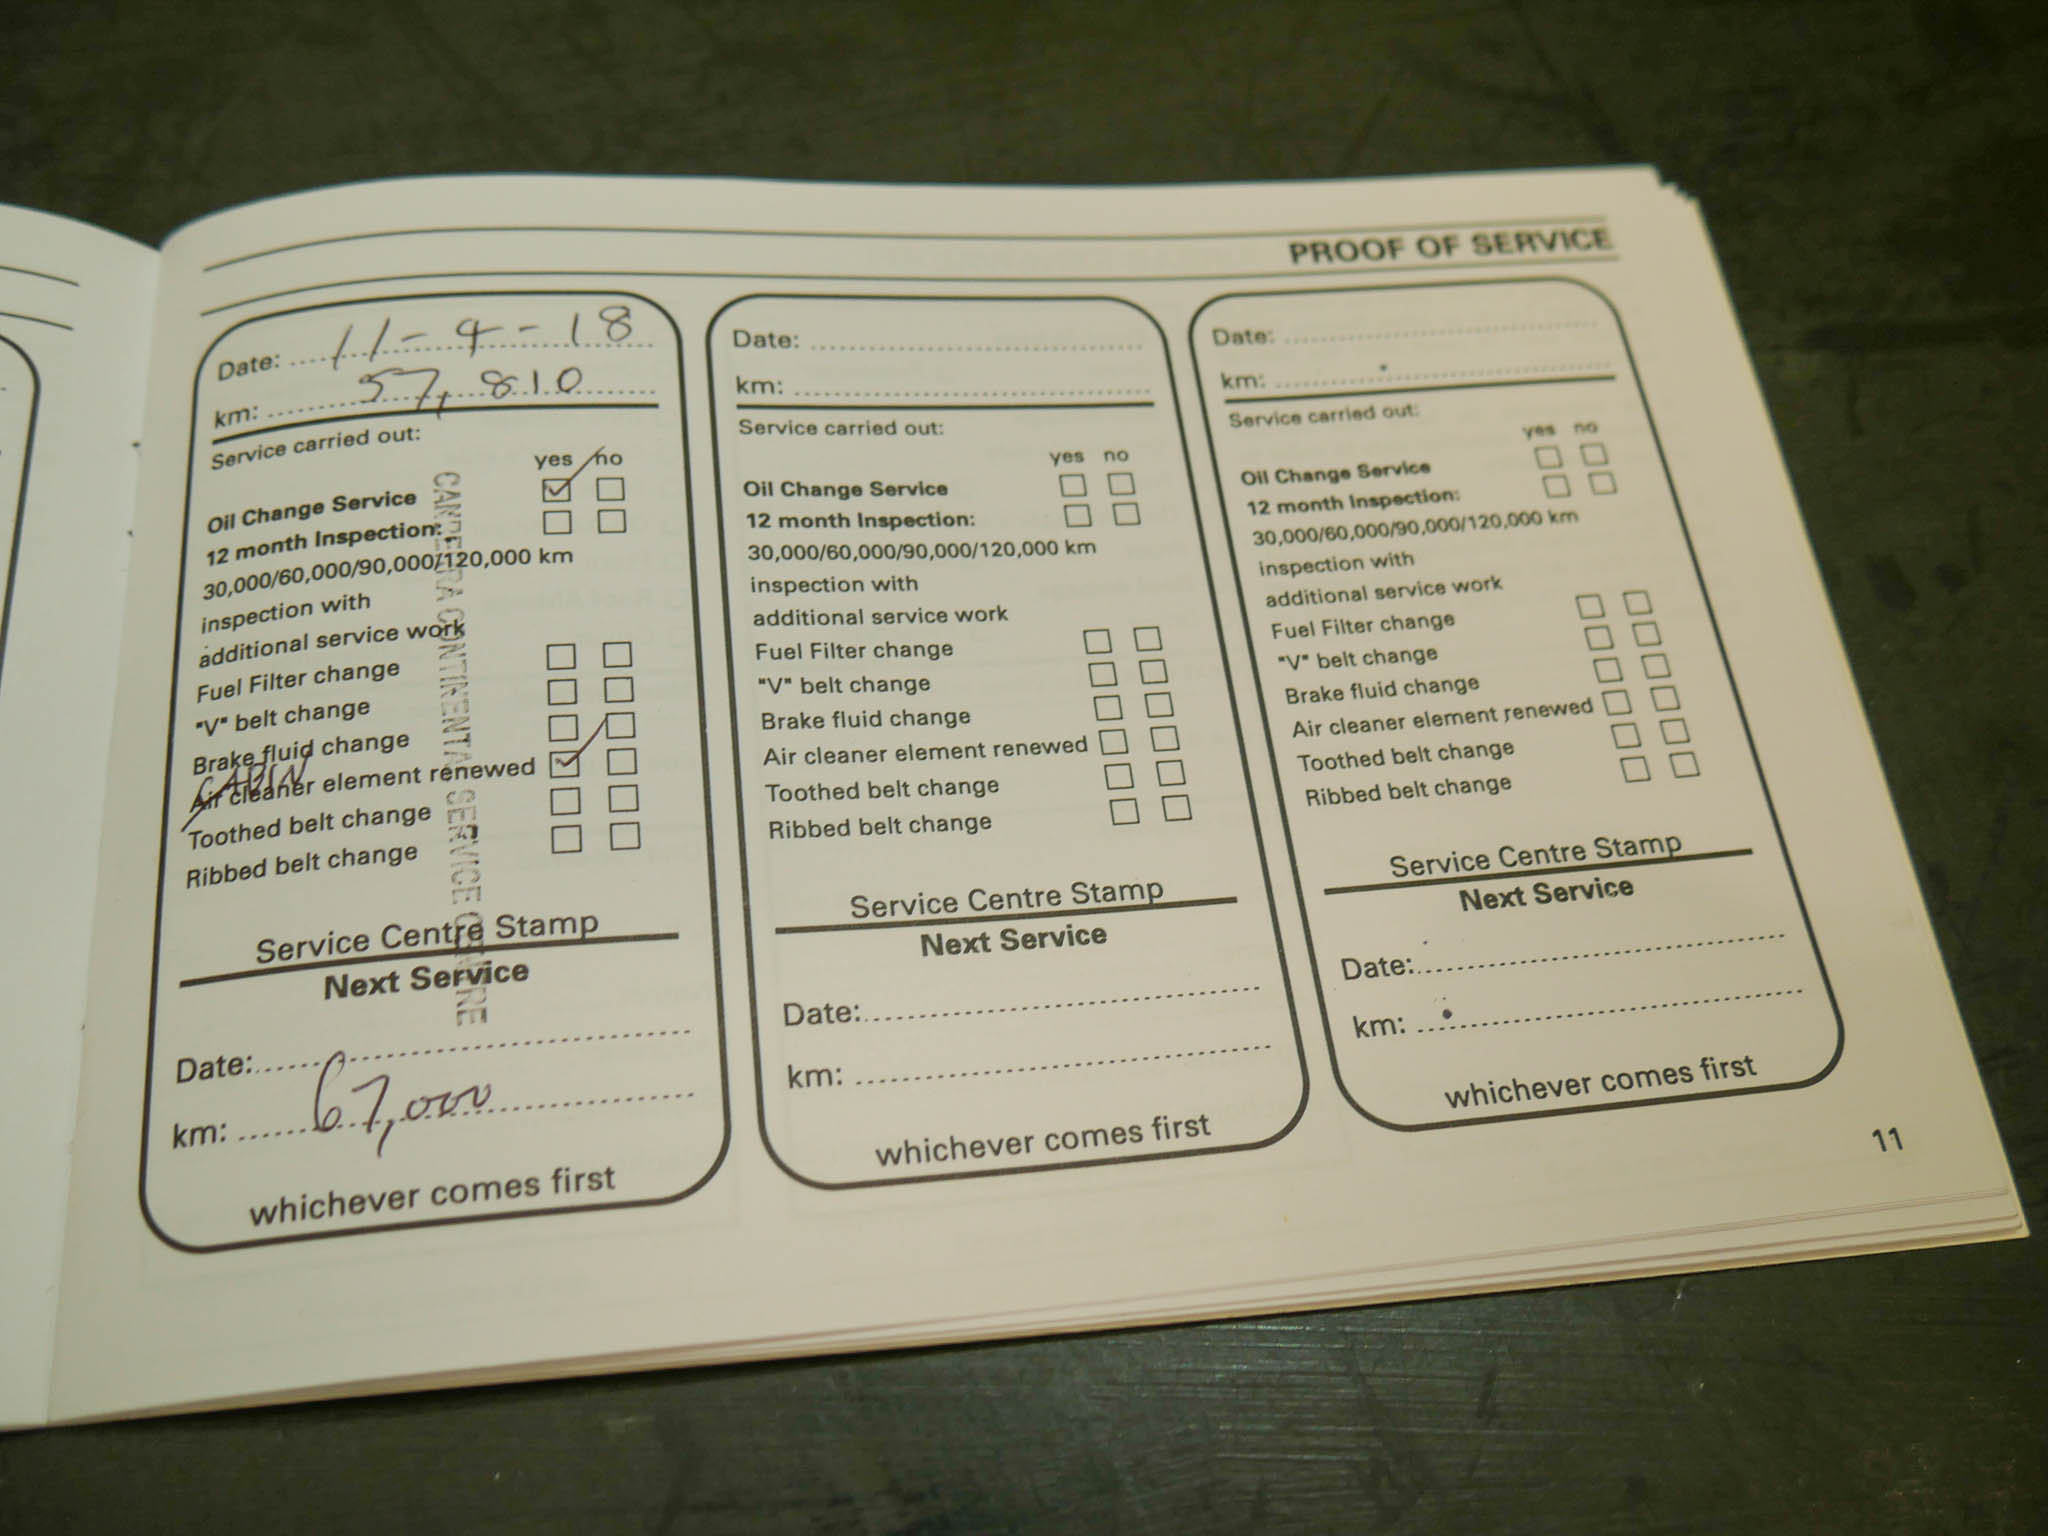 PROOF OF SERVICE
Date: 11-4-18
km: 57,810
Service carried out:
yes no
Oil Change Service
12 month Inspection:
30,000/60,000/90,000/120,000 km
inspection with
additional service work
Fuel Filter change
"V" belt change
Brake fluid change
CABIN
Air cleaner element renewed
Toothed belt change
Ribbed belt change
CARRERA CONTINENTAL SERVICE CENTRE
Service Centre Stamp
Next Service
Date:
km: 67,000
whichever comes first
Date:
km:
Service carried out:
yes no
Oil Change Service
12 month Inspection:
30,000/60,000/90,000/120,000 km
inspection with
additional service work
Fuel Filter change
"V" belt change
Brake fluid change
Air cleaner element renewed
Toothed belt change
Ribbed belt change
Service Centre Stamp
Next Service
Date:
km:
whichever comes first
Date:
km:
Service carried out:
yes no
Oil Change Service
12 month Inspection:
30,000/60,000/90,000/120,000 km
inspection with
additional service work
Fuel Filter change
"V" belt change
Brake fluid change
Air cleaner element renewed
Toothed belt change
Ribbed belt change
Service Centre Stamp
Next Service
Date:
km:
whichever comes first
11